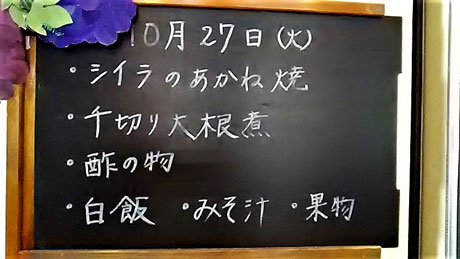 10月27日(火)
・シイラのあかね焼
・千切り大根煮
・酢の物
・白飯 ・みそ汁 ・果物